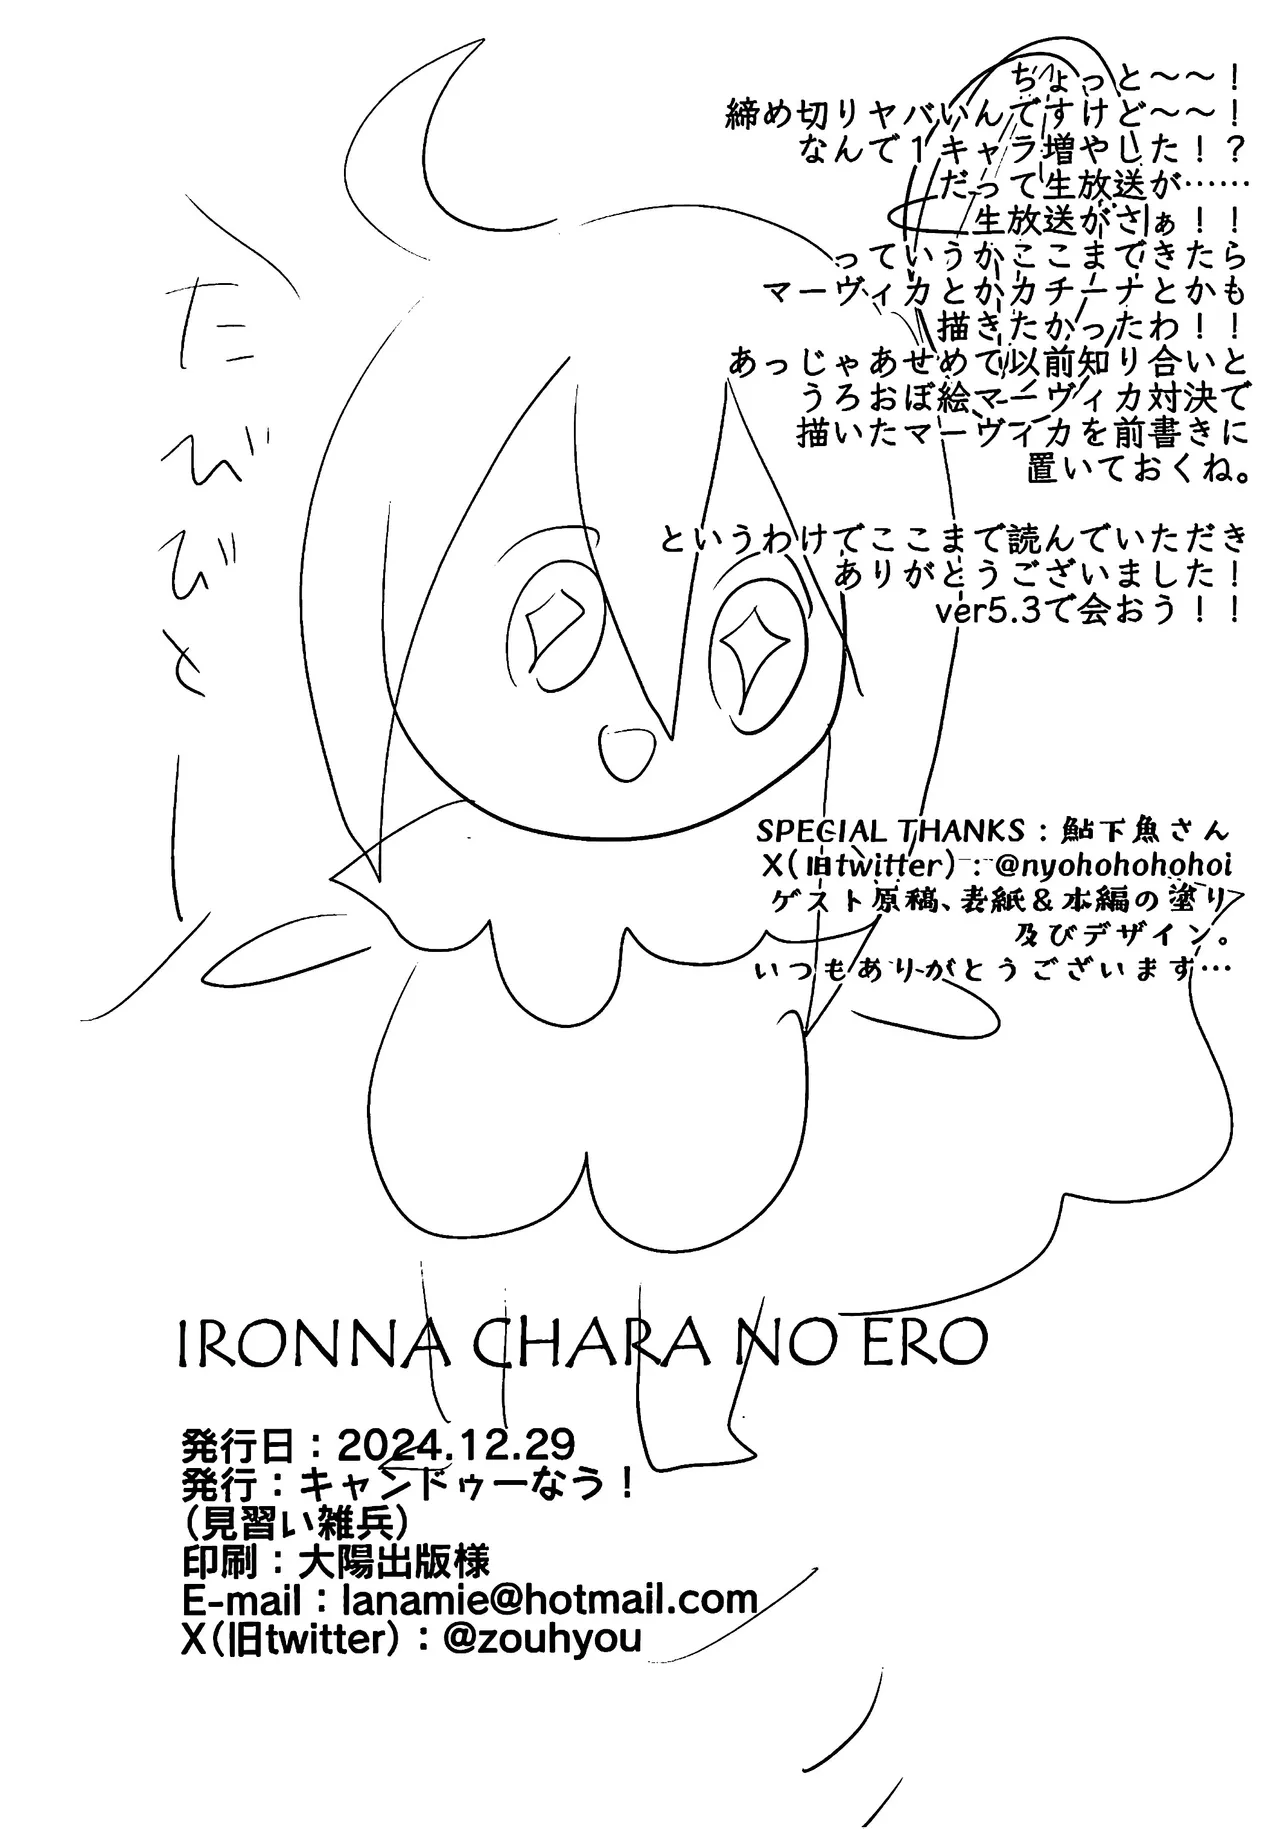 ちょっと～～！
締め切りヤバいんですけど～～！
なんで１キャラ増やした！？
だって生放送が……
生放送がさぁ！！
っていうかここまできたら
マーヴィカとかカチーナとかも
描きたかったわ！！
あっじゃあせめて以前知り合いと
うろおぼ絵マーヴィカ対決で
描いたマーヴィカを前書きに
置いておくね。
というわけでここまで読んでいただき
ありがとうございました！
ver5.3で会おう！！
たびびと
SPECIAL THANKS：鮎下魚さん
X(旧twitter)：@nyohohohohoi
ゲスト原稿、表紙＆本編の塗り
及びデザイン。
いつもありがとうございます…
IRONNA CHARA NO ERO
発行日：2024.12.29
発行：キャンドゥーなう！
(見習い雑兵)
印刷：大陽出版様
E-mail：lanamie@hotmail.com
X(旧twitter)：@zouhyou